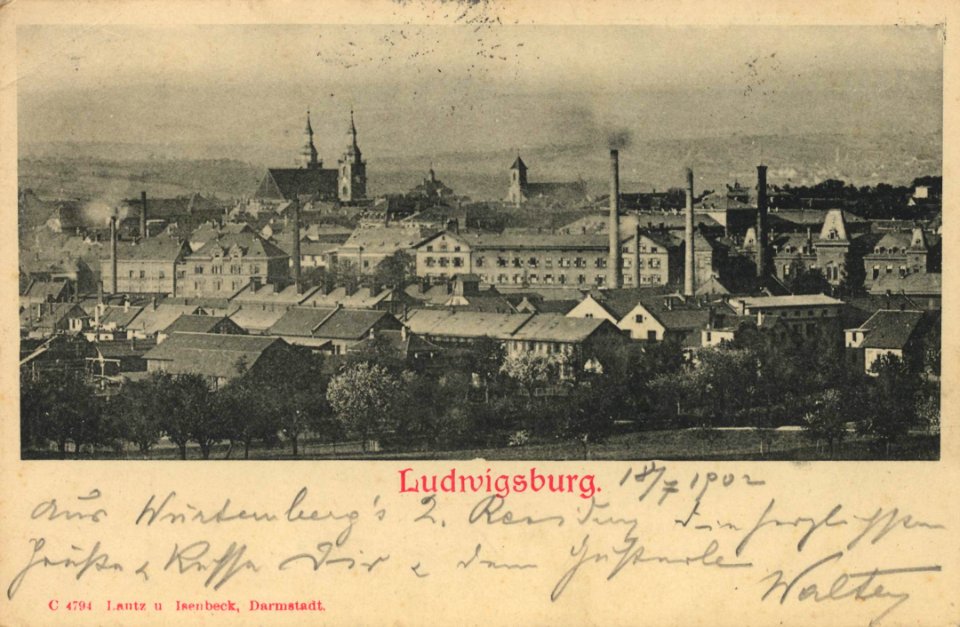 Ludwigsburg. 18/7 1902
Aus Würtemberg's 2. Residenz die herzlichsten
Grüße & Küsse Dir & dem
Walter
C 4794 Lautz u Isenbeck, Darmstadt.